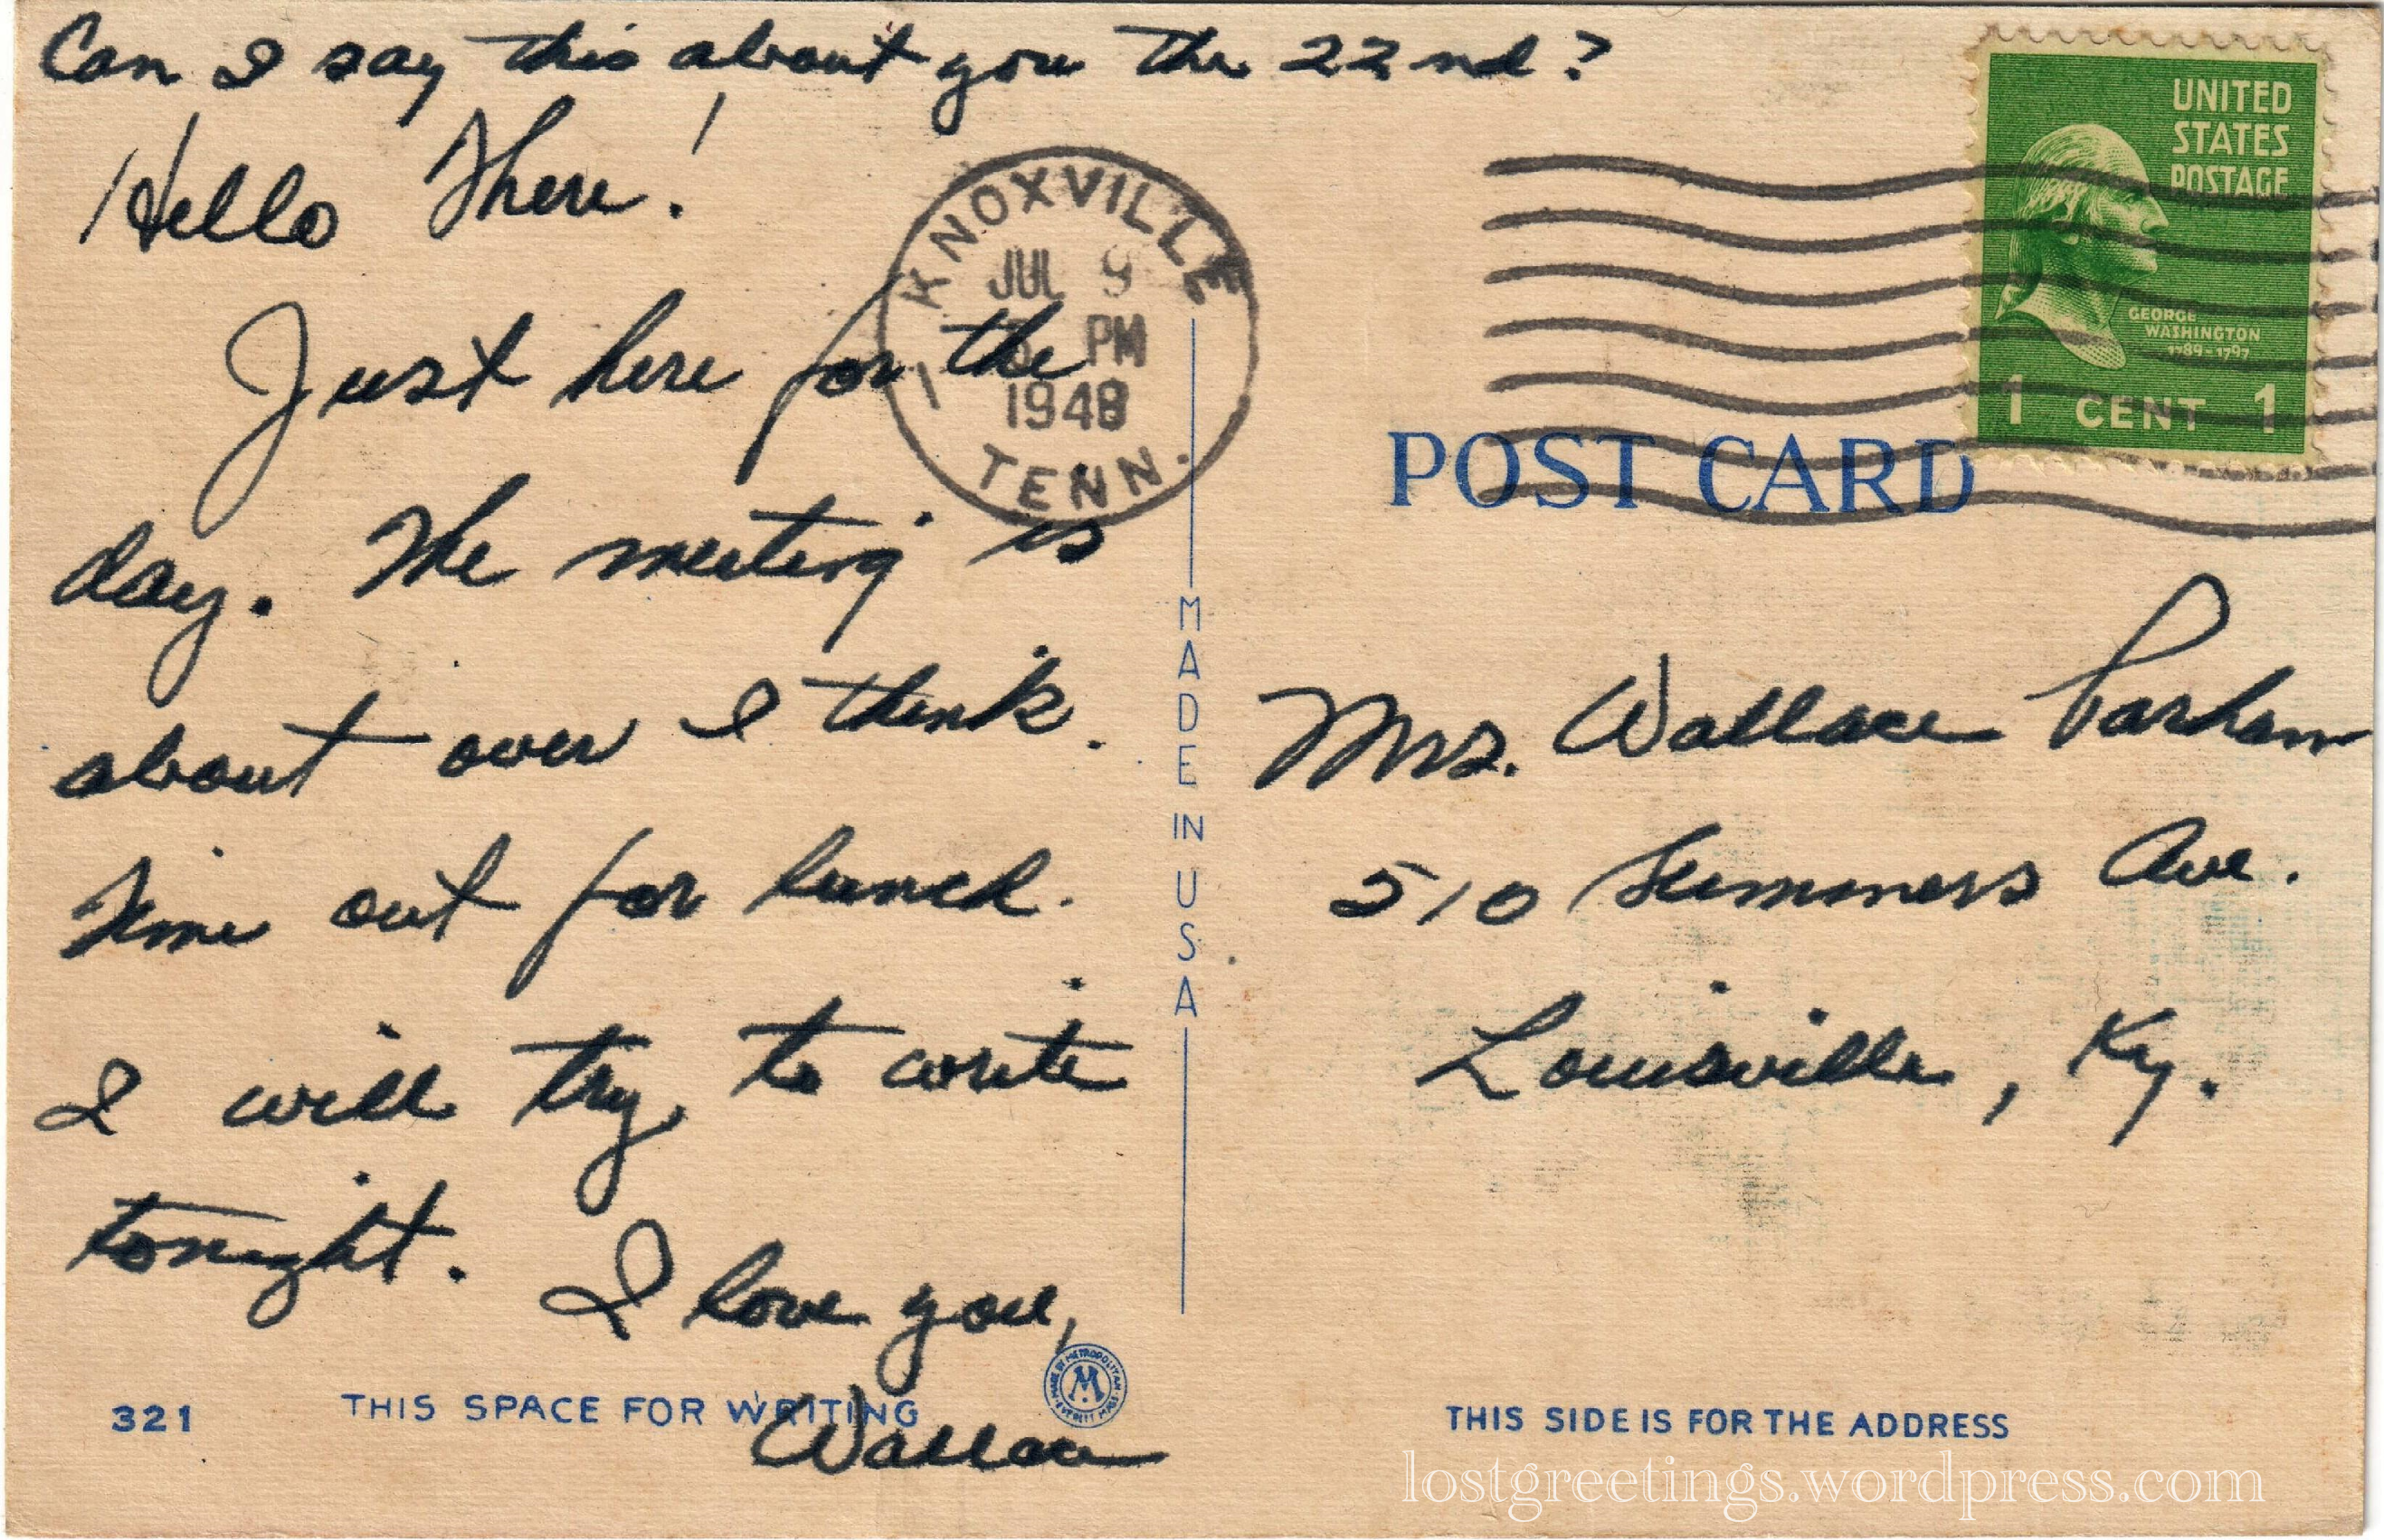 Can I say this about you the 22nd?
Hello There!
Just here for the
day. The meeting is
about over I think.
Time out for lunch.
I will try to write
tonight. I love you,
Wallace
321
THIS SPACE FOR WRITING
KNOXVILLE
JUL 9
PM
1948
TENN.
1
MADE IN USA
MADE BY METROPOLITAN
M
EVERETT MASS.
UNITED
STATES
POSTAGE
GEORGE
WASHINGTON
1789-1797
1 CENT 1
POST CARD
Mrs. Wallace Parham
510 Summers Ave.
Louisville, Ky.
THIS SIDE IS FOR THE ADDRESS
lostgreetings.wordpress.com